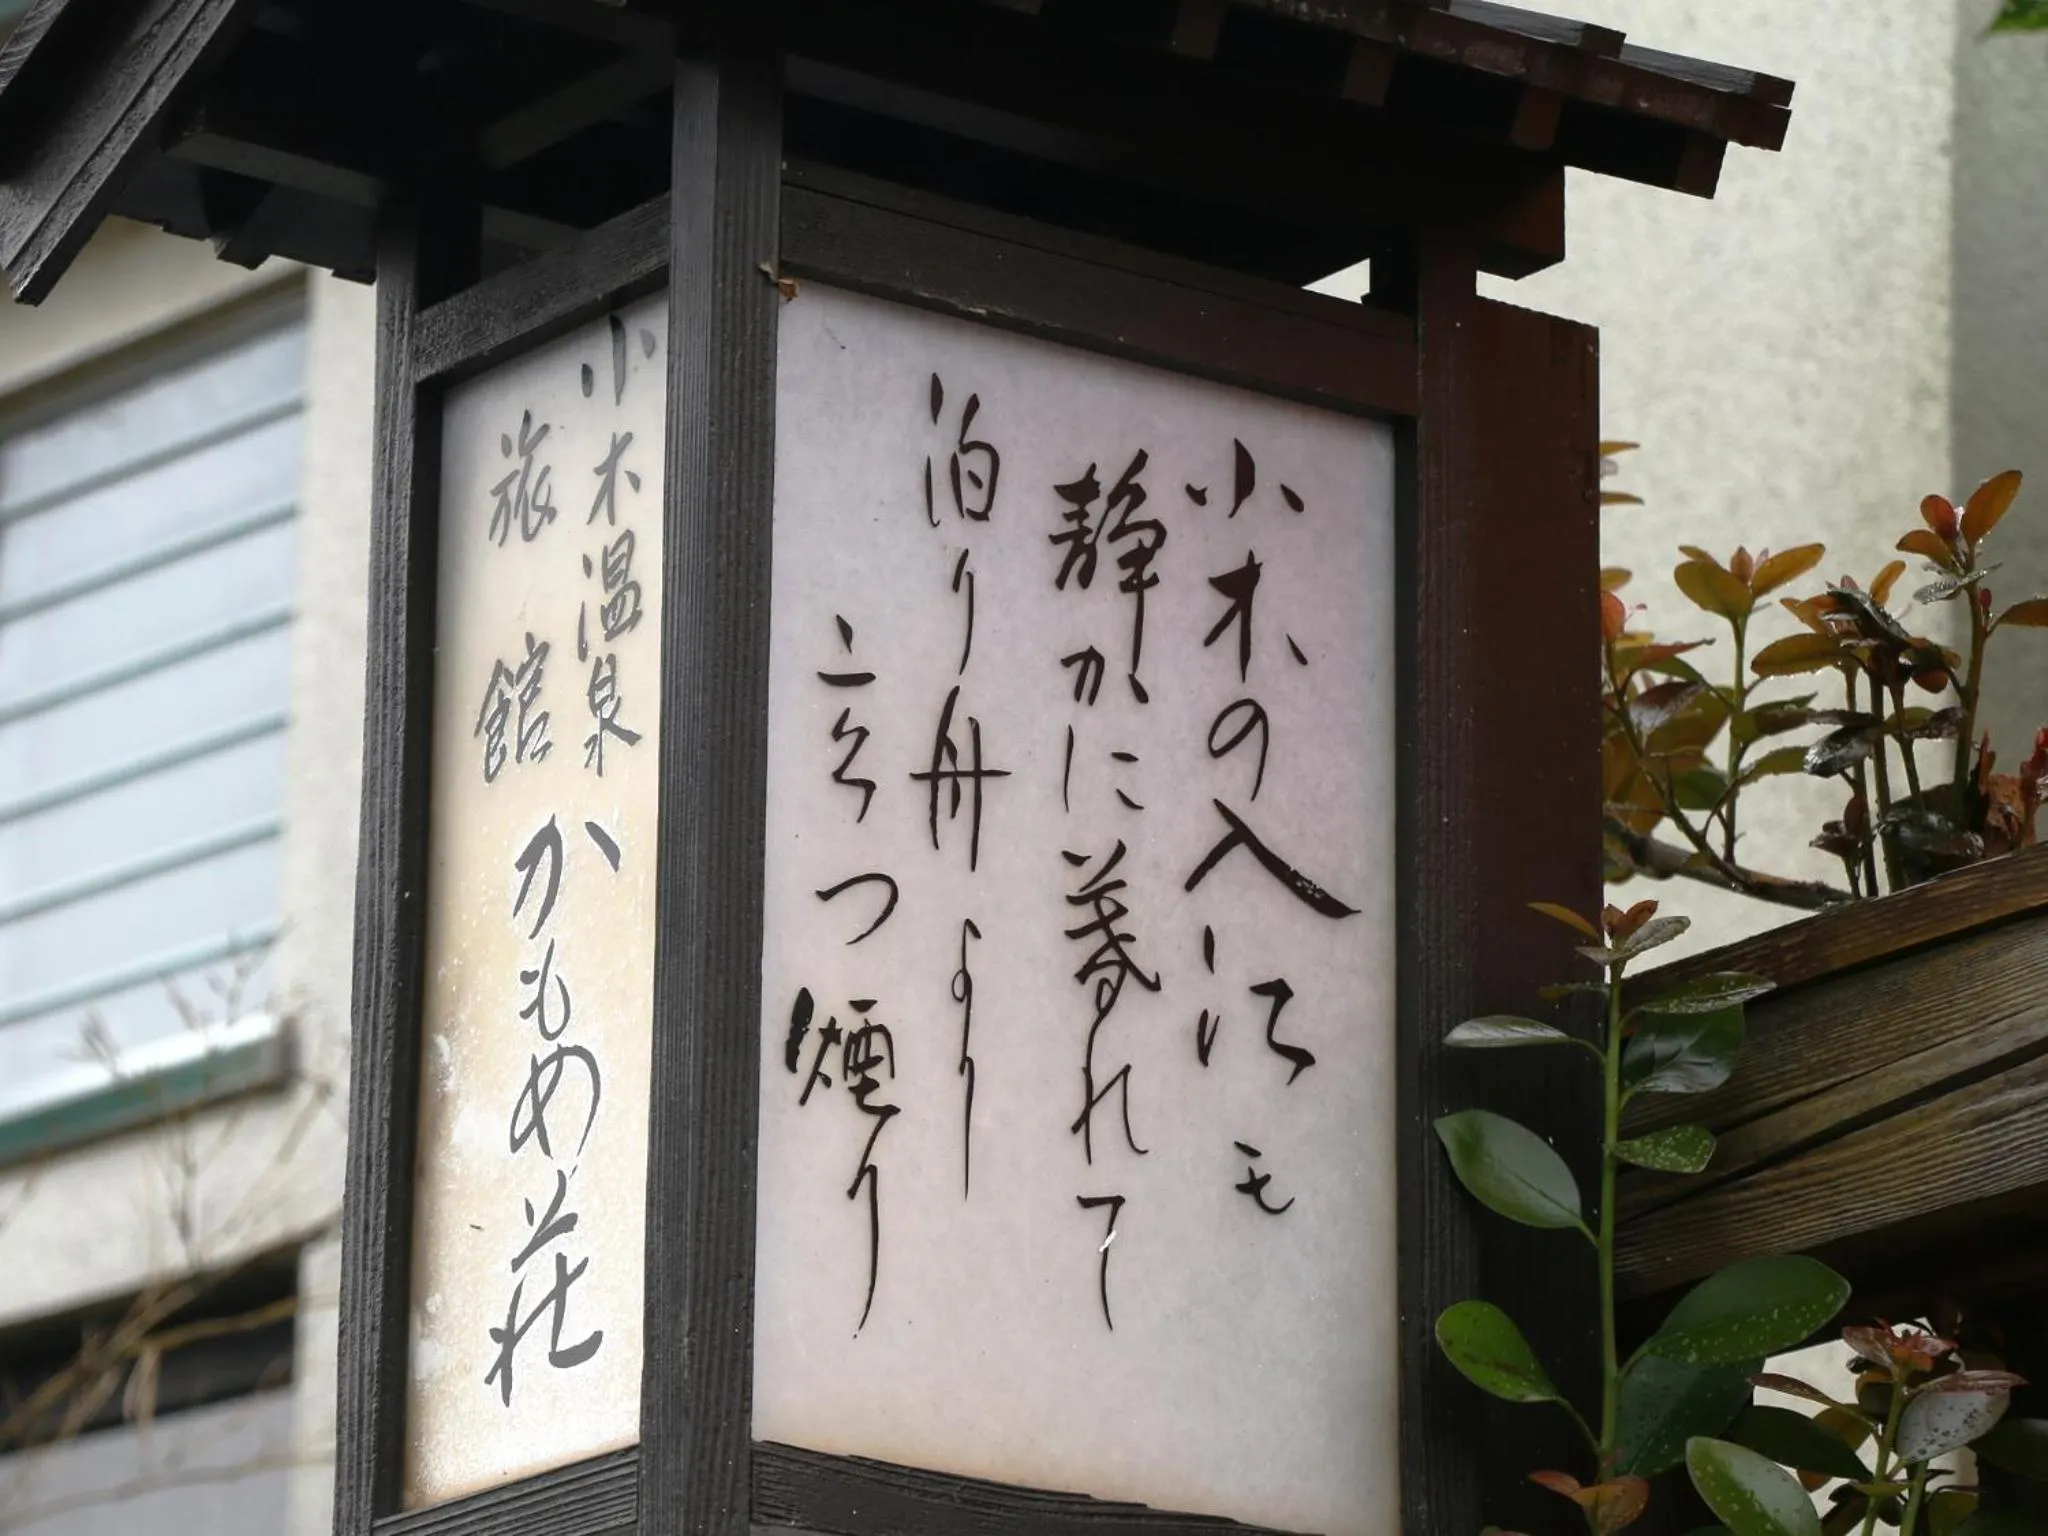 小木の入江モ
静かに暮れて
泊り舟より
立つ煙り
小木温泉
旅館 かもめ荘